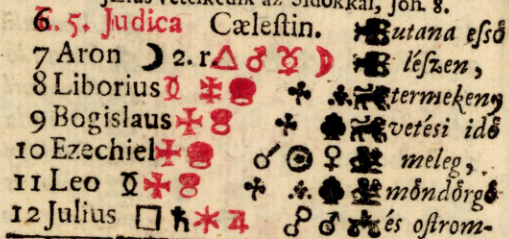 Jézus vetekedik az Sidokkal, Joh. 8.
6 E. 5. Judica Cælestin. utana essö
7 Aron ☽ 2. r. △ ♂ ☿ ☽ lészen,
8 Liborius ☿ termekeny
9 Bogislaus vetési idö
10 Ezechiel ☍ ☉ ♀ meleg,
11 Leo ☿ möndörgö
12 Julius □ ♄ ✶ ♃ ☍ ♂ és ostrom-